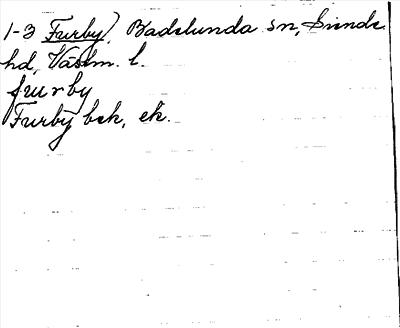 1-3 Furby, Badelunda sn, Siende
hd, Västm. l.
furby
Furby bsk, ek.